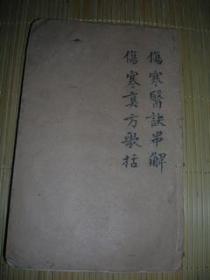 傷寒醫訣串解
傷寒真方歌括